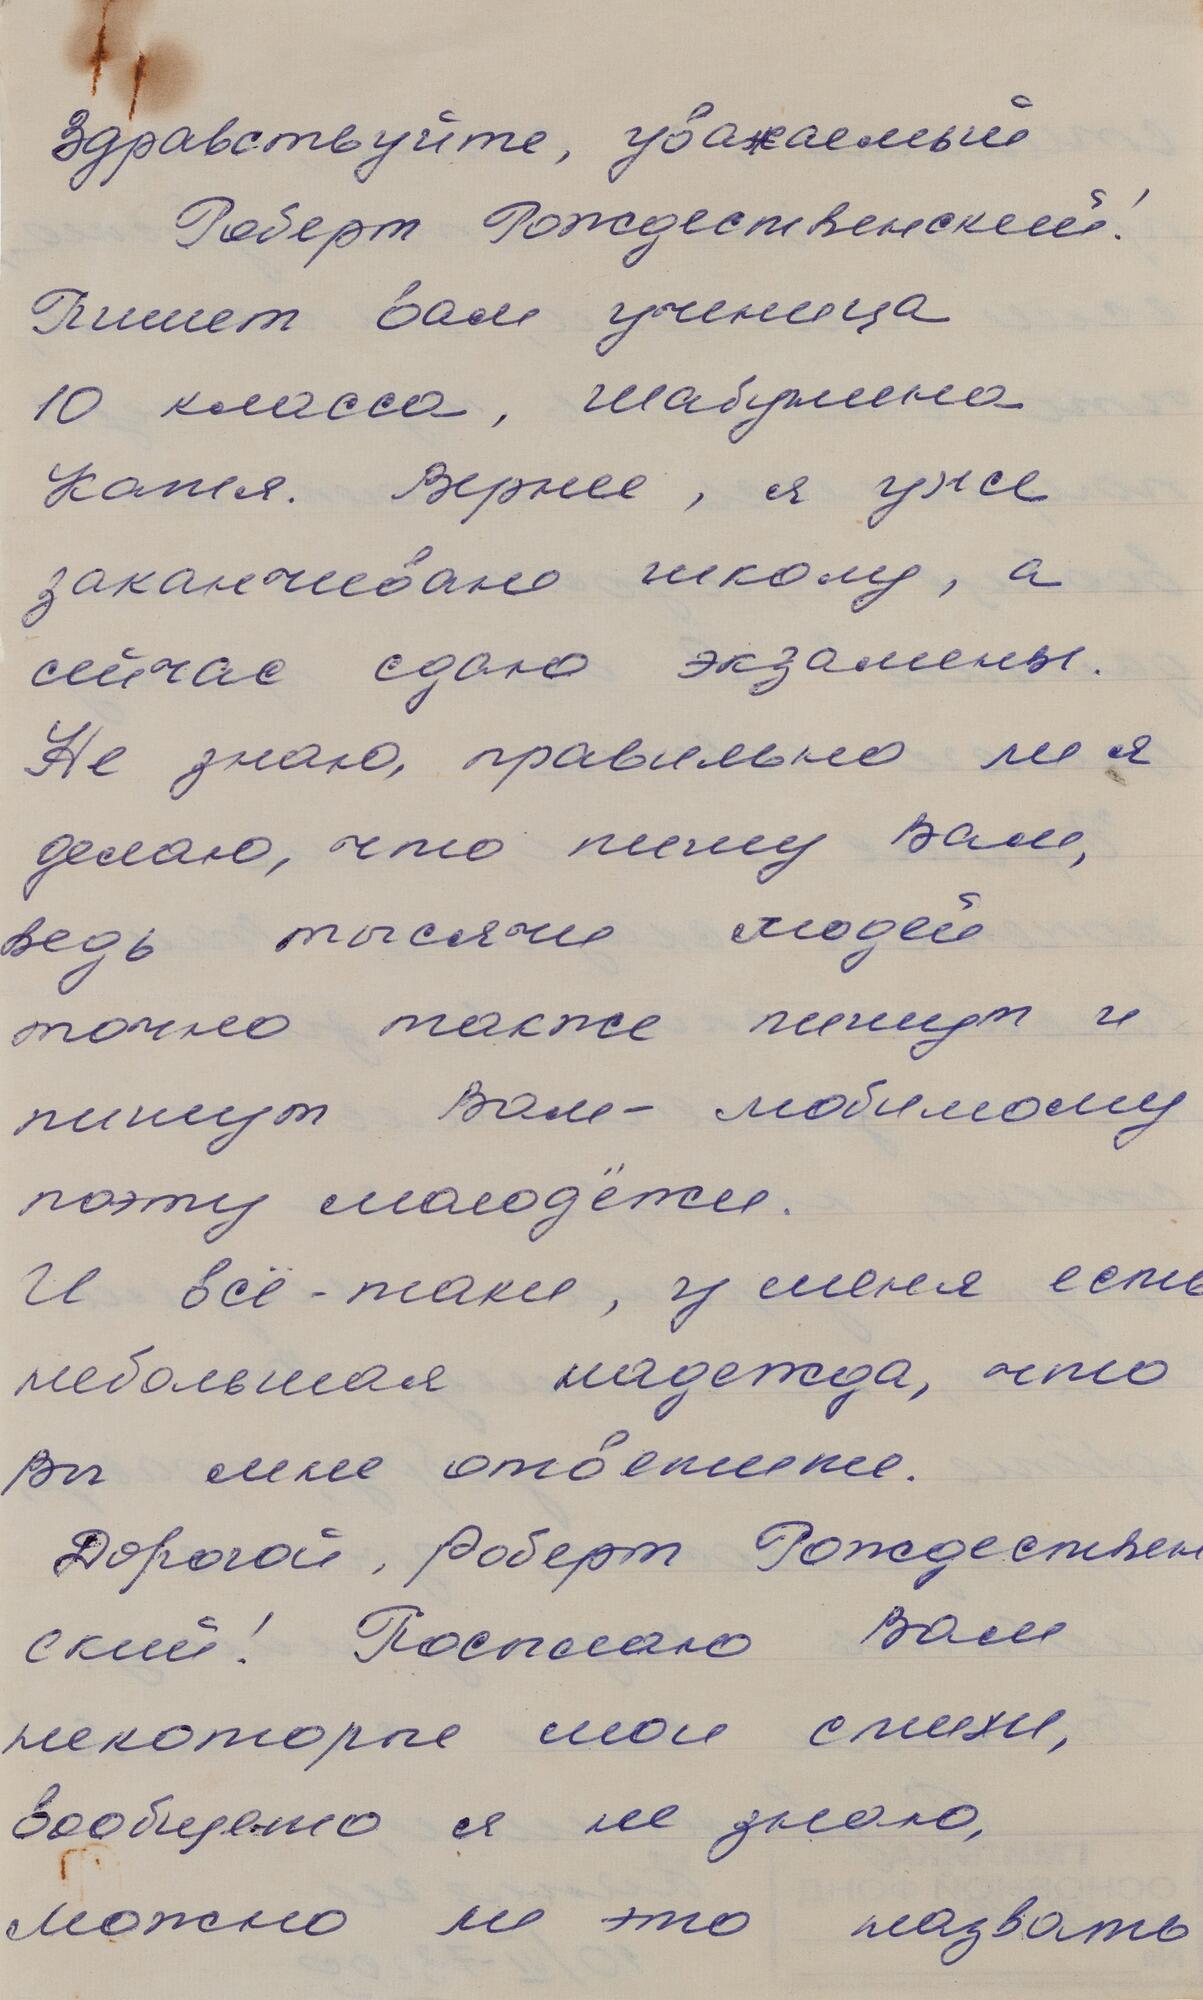 Здравствуйте, уважаемый
Роберт Рождественский!
Пишет вам ученица
10 класса, Шабунина
Катя. Вернее, я уже
заканчиваю школу, а
сейчас сдаю экзамены.
Не знаю, правильно ли я
делаю, что пишу Вам,
ведь тысячи людей
точно также пишут и
пишут Вам - любимому
поэту молодёжи.
И всё-таки, у меня есть
небольшая надежда, что
Вы мне ответите.
Дорогой, Роберт Рождествен
ский! Посылаю Вам
некоторые мои стихи,
вообще-то я не знаю,
можно ли это назвать